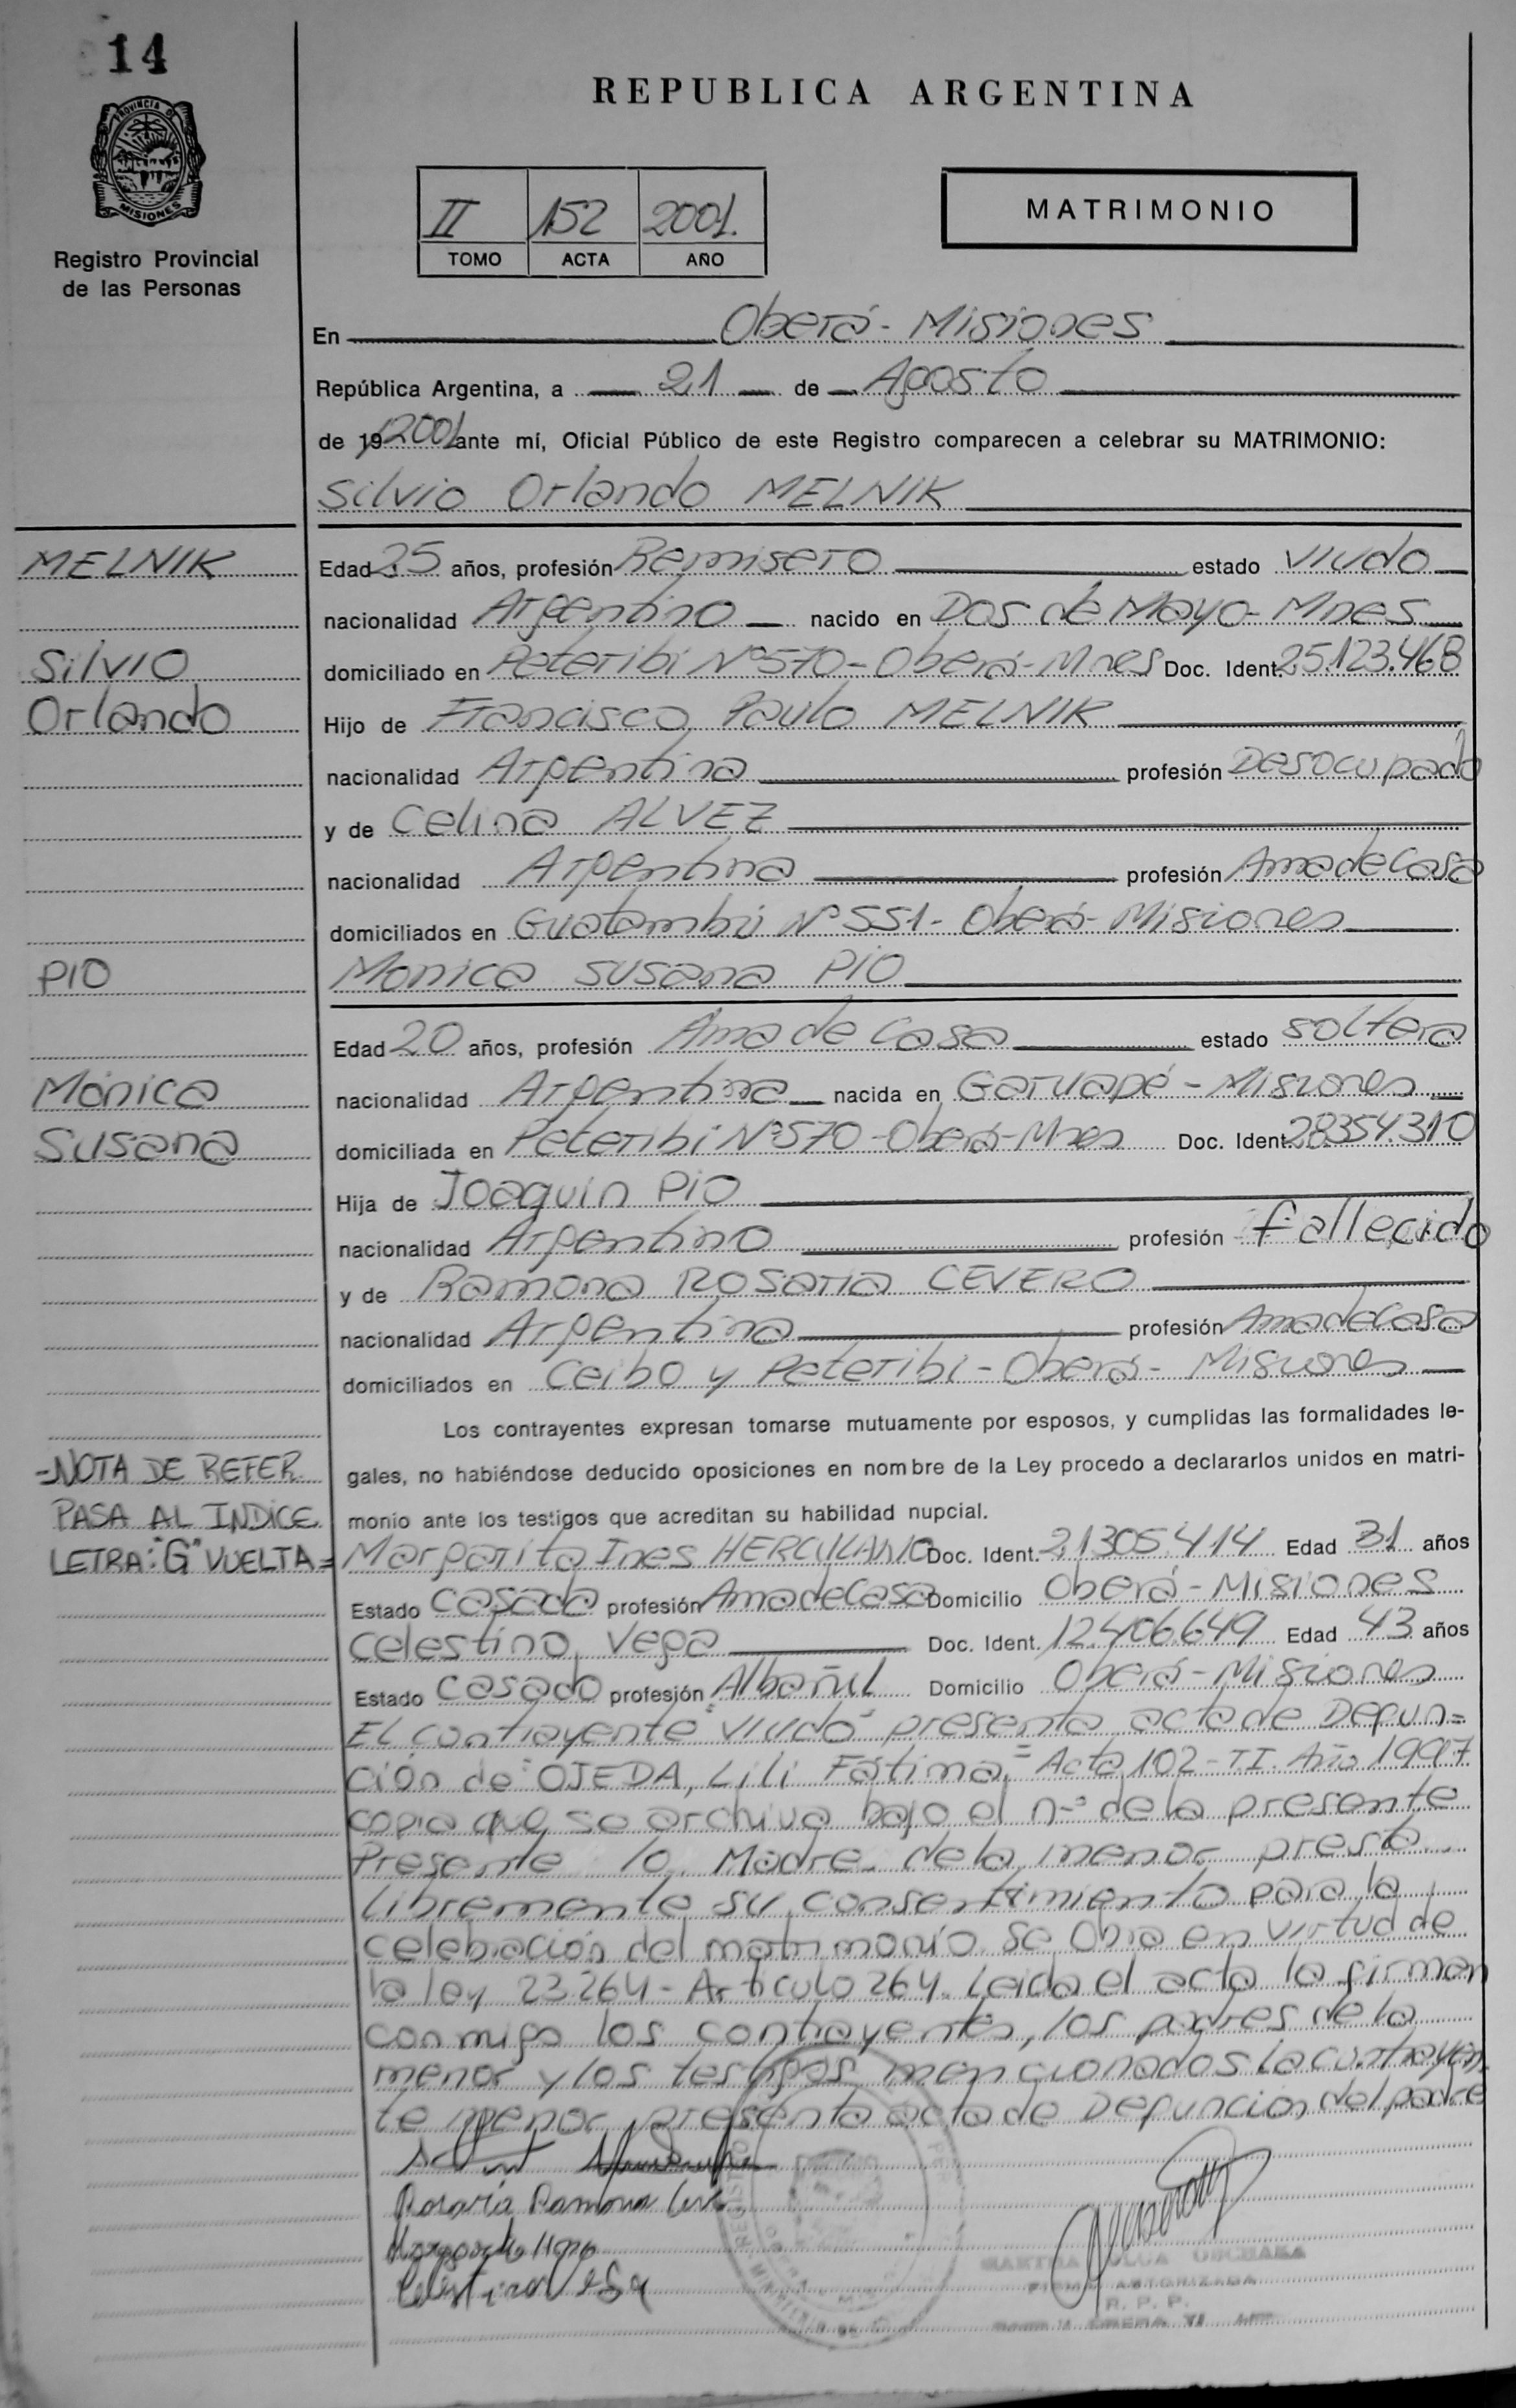 14
REPUBLICA ARGENTINA
PROVINCIA D
MISIONES
Registro Provincial
de las Personas
II 152 2001.
TOMO ACTA AÑO
MATRIMONIO
En Oberá - Misiones
República Argentina, a 21 de Agosto
de 19 2001 ante mí, Oficial Público de este Registro comparecen a celebrar su MATRIMONIO:
Silvio Orlando MELNIK
MELNIK
Edad 25 años, profesión Remisero estado Viudo
nacionalidad Argentino nacido en Dos de Mayo - Mnes
Silvio
domiciliado en Peteribi Nº 570 - Oberá - Mnes Doc. Ident. 25.123.468
Orlando
Hijo de Francisco Paulo MELNIK
nacionalidad Argentina profesión Desocupado
y de Celina ALVEZ
nacionalidad Argentina profesión Ama de Casa
domiciliados en Guatambú Nº 551 - Oberá - Misiones
PIO
Monica Susana PIO
Edad 20 años, profesión Ama de Casa estado soltera
Mónica
nacionalidad Argentina nacida en Garuapé - Misiones
Susana
domiciliada en Peteribi Nº 570 - Oberá - Mnes Doc. Ident. 28354.310
Hija de Joaquin PIO
nacionalidad Argentino profesión fallecido
y de Ramona Rosaria CEVERO
nacionalidad Argentina profesión Ama de Casa
domiciliados en Ceibo y Peteribi - Oberá - Misiones
Los contrayentes expresan tomarse mutuamente por esposos, y cumplidas las formalidades le-
gales, no habiéndose deducido oposiciones en nombre de la Ley procedo a declararlos unidos en matri-
monio ante los testigos que acreditan su habilidad nupcial.
=NOTA DE REFER
PASA AL INDICE
LETRA: "G" VUELTA=
Margarita Ines HERCULANO Doc. Ident. 21305.414 Edad 31 años
Estado Casada profesión Ama de Casa Domicilio Oberá - Misiones
Celestino Vega Doc. Ident. 12.406.649 Edad 43 años
Estado Casado profesión Albañil Domicilio Oberá - Misiones
El contrayente "viudo" presenta acta de Defun=
ción de "OJEDA, Lili Fátima" = Acta 102 - II. Año 1997
copia que se archiva bajo el nº de la presente
Presente la Madre de la menor presta
libremente su consentimiento para la
celebración del matrimonio se Obra en virtud de
la ley 23.264 - Artículo 264. Leida el acta la firman
conmigo los contrayentes, los padres de la
menor y los testigos mencionados la contrayen
te menor presenta acta de Defunción del padre
Rosaria Ramona
Celestino Vega
FIRMA AUTORIZADA
R. P. P.